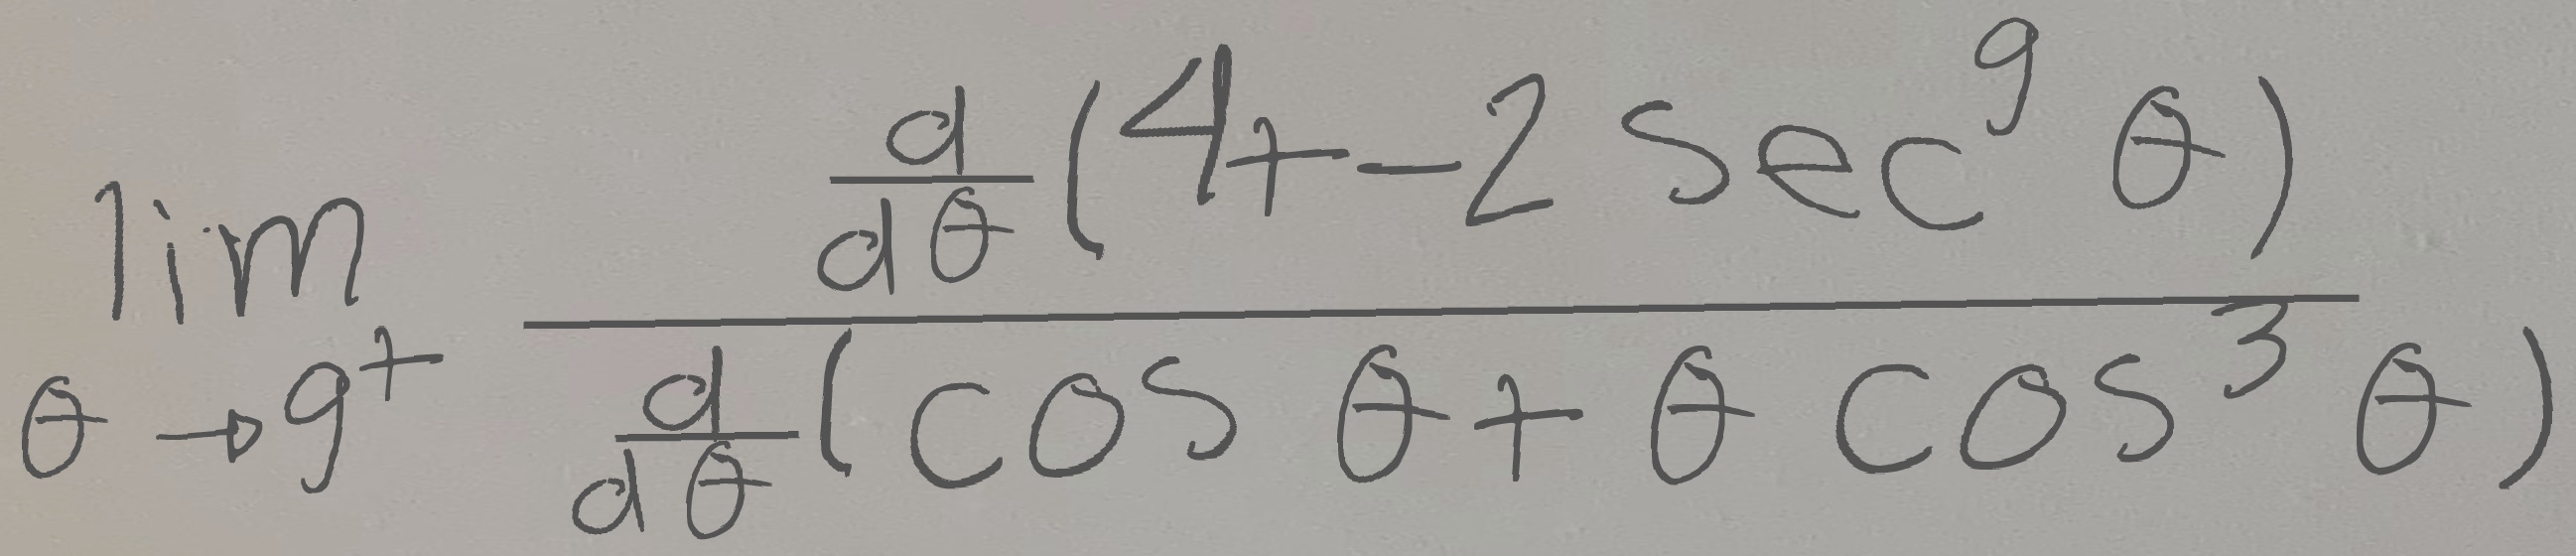 \lim_{\theta \to 9^+} \frac{\frac{d}{d\theta}(4+-2\sec^9\theta)}{\frac{d}{d\theta}(\cos\theta+\theta\cos^3\theta)}